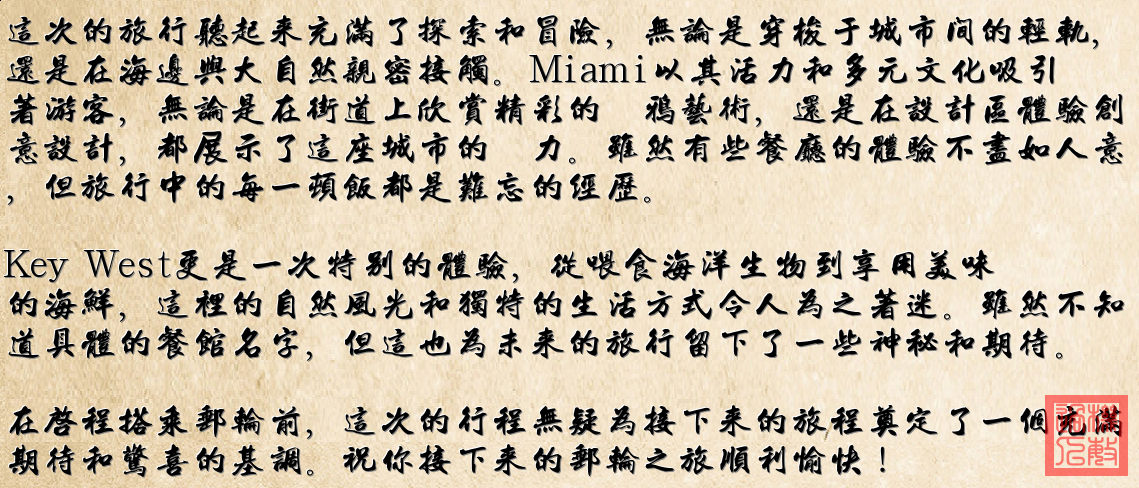 這次的旅行聽起來充滿了探索和冒險，無論是穿梭于城市间的輕軌，
還是在海邊與大自然親密接觸。Miami以其活力和多元文化吸引
著游客，無論是在街道上欣賞精彩的 鴉藝術，還是在設計區體驗創
意設計，都展示了這座城市的 力。雖然有些餐廳的體驗不盡如人意
，但旅行中的每一頓飯都是難忘的經歷。
Key West更是一次特別的體驗，從喂食海洋生物到享用美味
的海鮮，這裡的自然風光和獨特的生活方式令人為之著迷。雖然不知
道具體的餐館名字，但這也為未來的旅行留下了一些神秘和期待。
在啓程搭乘郵輪前，這次的行程無疑為接下來的旅程奠定了一個充滿
期待和驚喜的基調。祝你接下來的郵輪之旅順利愉快！